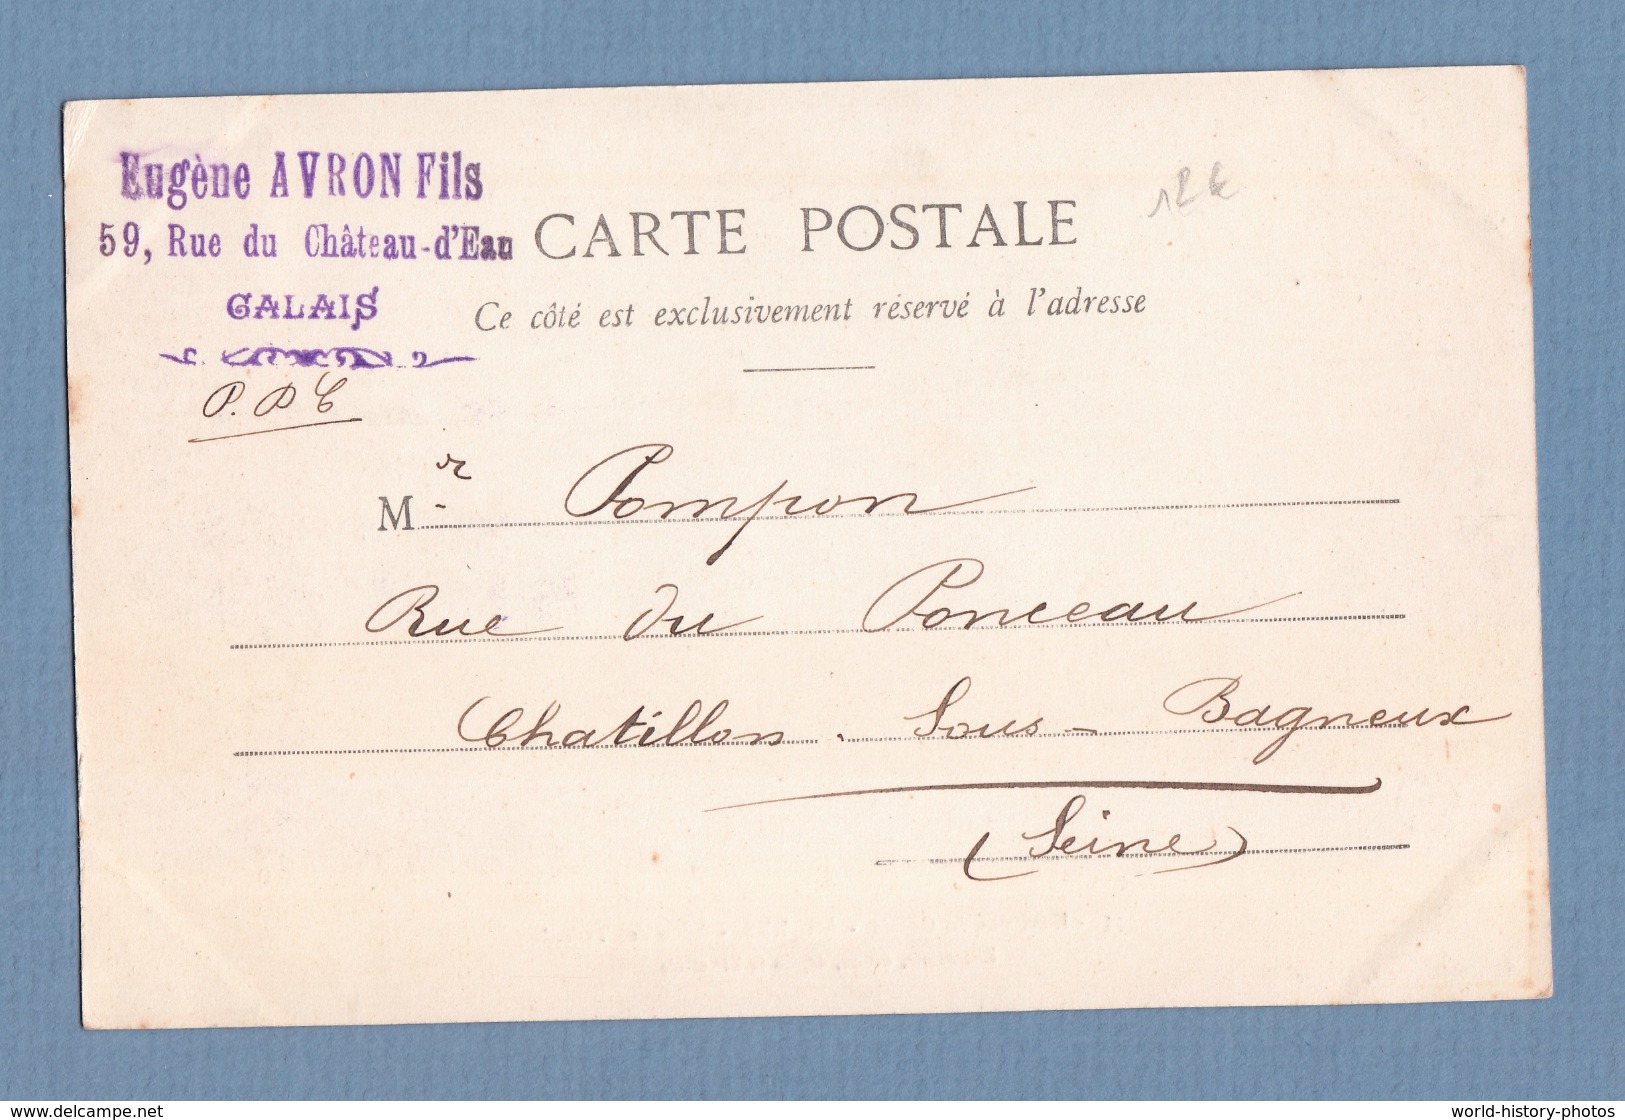 Eugène AVRON Fils
59, Rue du Château-d'Eau
CALAIS
CARTE POSTALE
12 €
Ce côté est exclusivement réservé à l'adresse
P. P C
M.r Pompon
Rue du Ponceau
Chatillon. Sous-Bagneux
(Seine)
www.delcampe.net
world-history-photos